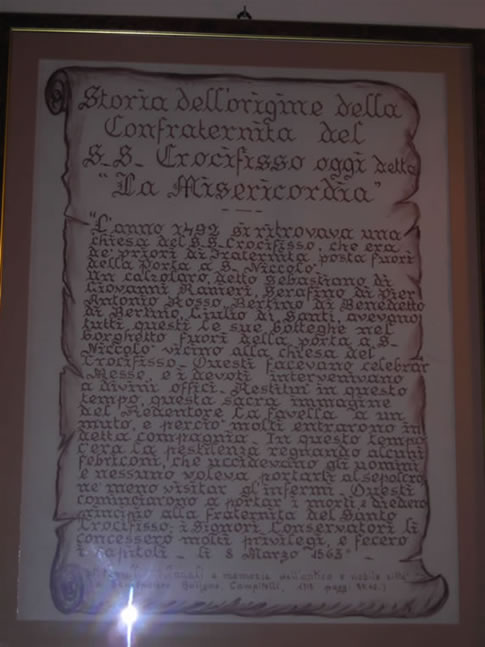 Storia dell'origine della
Confraternita del
S.S. Crocifisso oggi detta
"La Misericordia"
"L'anno 1492 si ritrovava una
chiesa del S.S. Crocifisso, che era
de' priori di Fraternita posta fuori
della Porta a S. Niccolo'.
Un calzolaro detto Sebastiano di
Giovanni Ranieri, Serafino di Pier
Antonio Rosso, Bertino di Benedetto
di Bertino, Giulio di Santi, avevono
tutti questi le sue botteghe nel
borghetto fuori della porta a S.
Niccolo' vicino alla chiesa del
Crocifisso. Questi facevano celebrar
Messe, e i devoti intervenivano
a divini offici. Restitui in questo
tempo, questa sacra immagine
del Redentore la favella a un
muto, e percio' molti entrarono in
detta compagnia. In questo tempo
c'era la pestilenza regnando alcuni
febriconi, che uccidevano gli uomini
e nessuno voleva portarli al sepolcro
ne meno visitar gl'infermi. Questi
cominciarono a portar i morti e diedero
principio alla fraternita del Santo
Crocifisso; i Signori Conservatori li
concessero molti privilegi, e fecero
i capitoli. li 8 Marzo 1563"
Annali e memorie dell'antica e nobile città
Bolgoni, Campitelli,